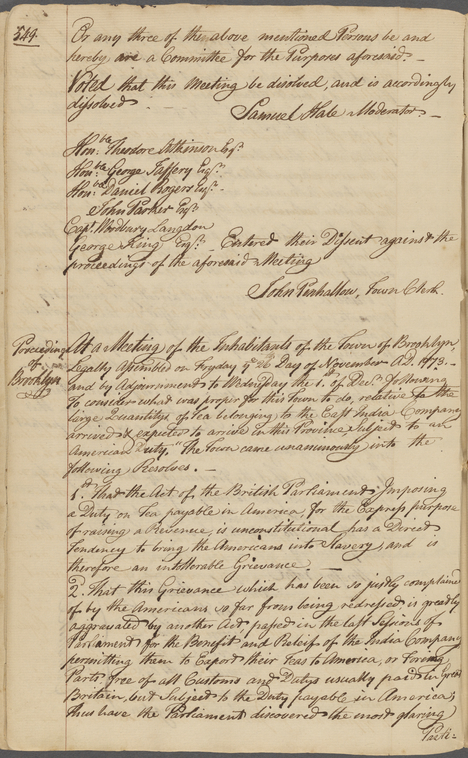 549
Or any three of the above mentioned Persons be and
hereby are a Committee for the Purposes aforesaid. —
Voted that this Meeting be disolved, and is accordingly
dissolved.
Samuel Hale Moderator —
Honble Theodore Atkinson Esqr.
Honble George Jaffery Esqr.
Honble Daniel Rogers Esqr. —
John Parker Esqr.
Capt. Woodbury Langdon
George King Esqr. — Entered their Dissent against the
proceedings of the aforesaid Meeting
John Penhallow, Town Clerk
Proceedings
of
Brooklyn
At a Meeting of the Inhabitants of the Town of
Legally Assembled on Fryday ye 26 Day of November A.D. 1773. —
and by Adjournment to Wednsday the 1. of Decr. following
To consider what was proper for this Town to do, relative to the
large Quantitys of Tea belonging to the East India Company
arrived & expected to arrive in this Province Subject to an
American Duty," The Town came unanimously into the
following Resolves. —
1st That the Act of the British Parliament, Imposing
a Duty on Tea payable in America, for the Express purpose
of raising a Revenue, is unconstitutional, has a Direct
Tendency to bring the Americans into Slavery, and is
therefore an intollerable Grievance —
2. That this Grievance which has been so justly complain'd
of by the Americans so far from being redressed is greatly
aggravated by another Act passed in the last Sessions of
Parliament for the Benefit and Releif of the India Company
permitting them to Export their Teas to America, or Foreign
Parts free of all Customs and Dutys usually paid in Great
Britain, but Subject to the Duty payable in America,
thus have the Parliament discovered the most glaring
Parti=